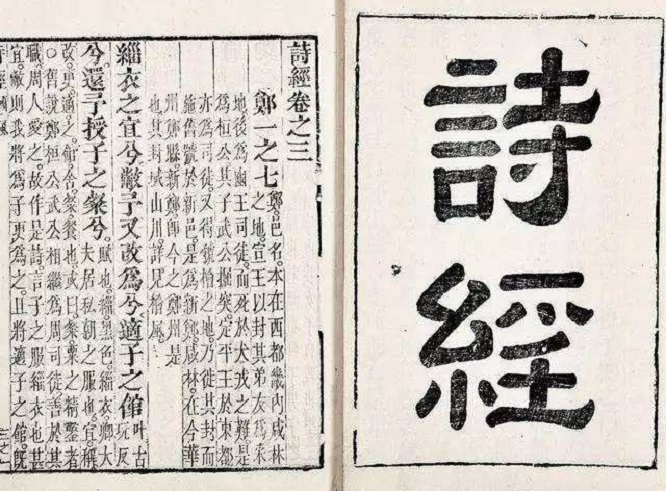 詩經
詩經卷之三
鄭一之七 鄭。邑名。本在西都畿內咸林
之地。宣王以封其弟友為采
地。後為幽王司徒。而死於犬戎之難。是
為桓公。其子武公掘突。定平王於東都。
亦為司徒。又得虢檜之地。乃徙其封。而
施舊號於新邑。是為新鄭。咸林。在今華
州鄭縣。新鄭。即今之鄭州是
也。其封域山川。詳見檜風。
緇衣之宜兮。敝予又改為兮。適子之館 叶古
玩反
兮。還予授子之粲兮。賦也。緇。黑色。緇衣。卿大
夫居私朝之服也。宜。稱
改。更。適。之。館。舍。粲。餐也。或曰。粲。粟之精鑿者
○舊說鄭桓公武公相繼為周司徒。善於其
職。周人愛之。故作是詩。言子之服緇衣也。甚
宜。敝。則我將為子更為之。且將適子之館。旣